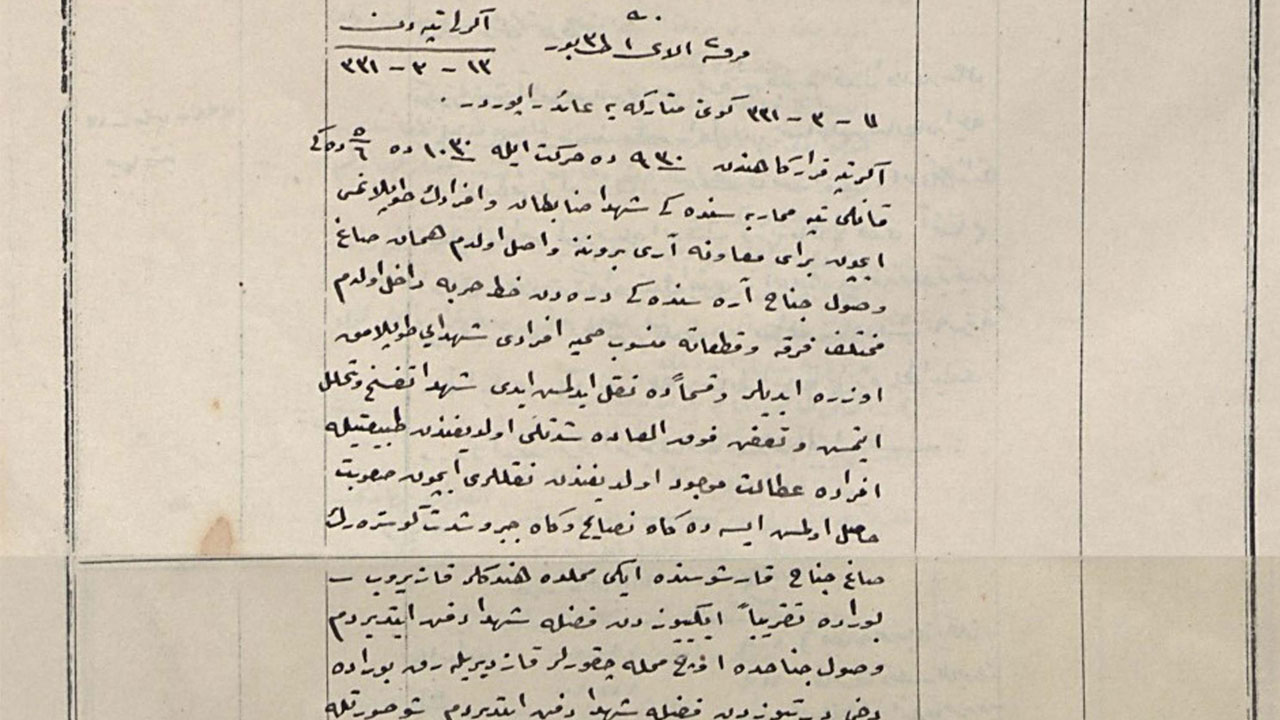 ٩٠
آكرلی تپه دن
فرقه الای ١ ط ٣ بور
١٣ - ٣ - ٣٣١
١١ - ٣ - ٣٣١ كونی متاركه یه عائد راپوردر.
آكرتپه قراركاهندن ٩٣٠ ده حركت ایله ١٠٣٠ ده ٥/٦ ده كی
قانلی تپه محاربه سنده كی شهدا ضابطان و افرادك طوپلانمسی
ایچون برای معاونه آری بروننه واصل اولدم همان صاغ
وصول جناح آره سنده كی دره دن خط حربه داخل اولدم
مختلف فرقه و قطعاته منسوب صحیه افرادی شهدایی طوپلامق
اوزره ایدیلر و قسماً ده نقل ایدلمش ایدی شهدا تفسخ و تحلل
ایتمش و تعفن فوق العاده شدتلی اولدیغندن طبیعتیله
افراده عطالت موجود اولدیغندن نقللری ایچون صعوبت
حاصل اولمش ایسه ده كاه نصایح و كاه جبر و شدت كوستره رك
صاغ جناح قارشوسنده ایكی محلده هندكلر قازیروب
بوراده تقریباً ایكیوزدن فضله شهدا دفن ایتدیردم
وصول جناحده اوچ محله چقورلر قازدیریله رق بوراده
دخی درتیوزدن فضله شهدا دفن ایتدیردم شو صورتله